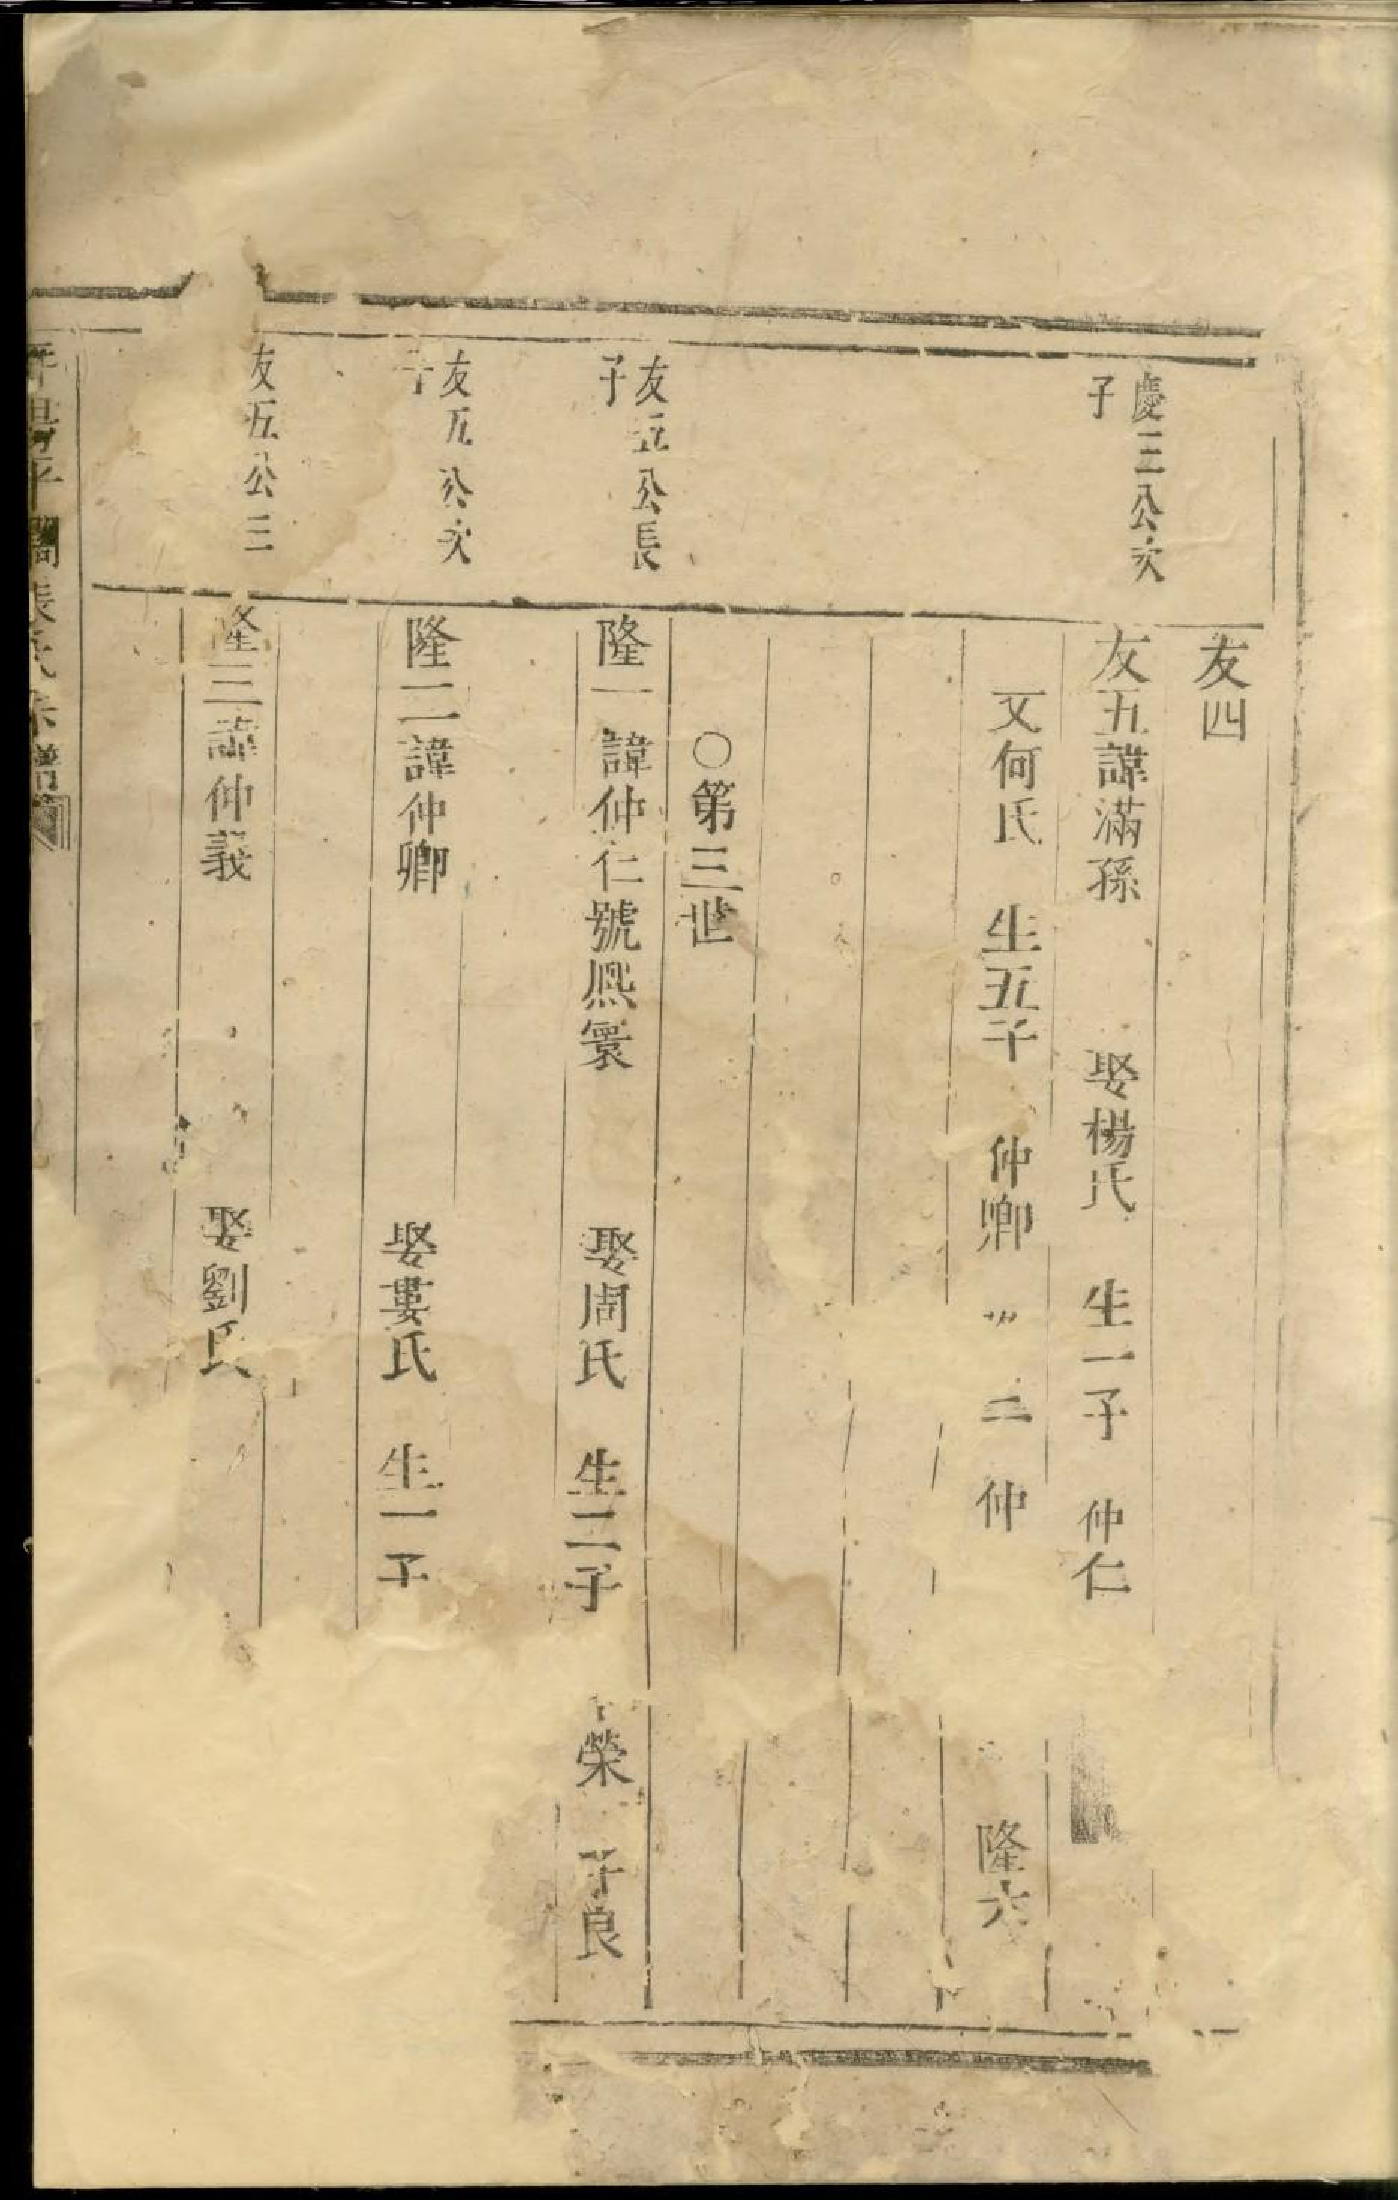 友四
慶三公次
子
友五諱滿孫 娶楊氏 生一子 仲仁
又何氏 生五子 仲卿 二 仲 隆六
○第三世
友五公長
子
隆一諱仲仁號熙寰 娶周氏 生二子 榮 子良
友五公次
子
隆二諱仲卿 娶婁氏 生一子
友五公三
隆三諱仲義 娶劉氏
張氏宗譜